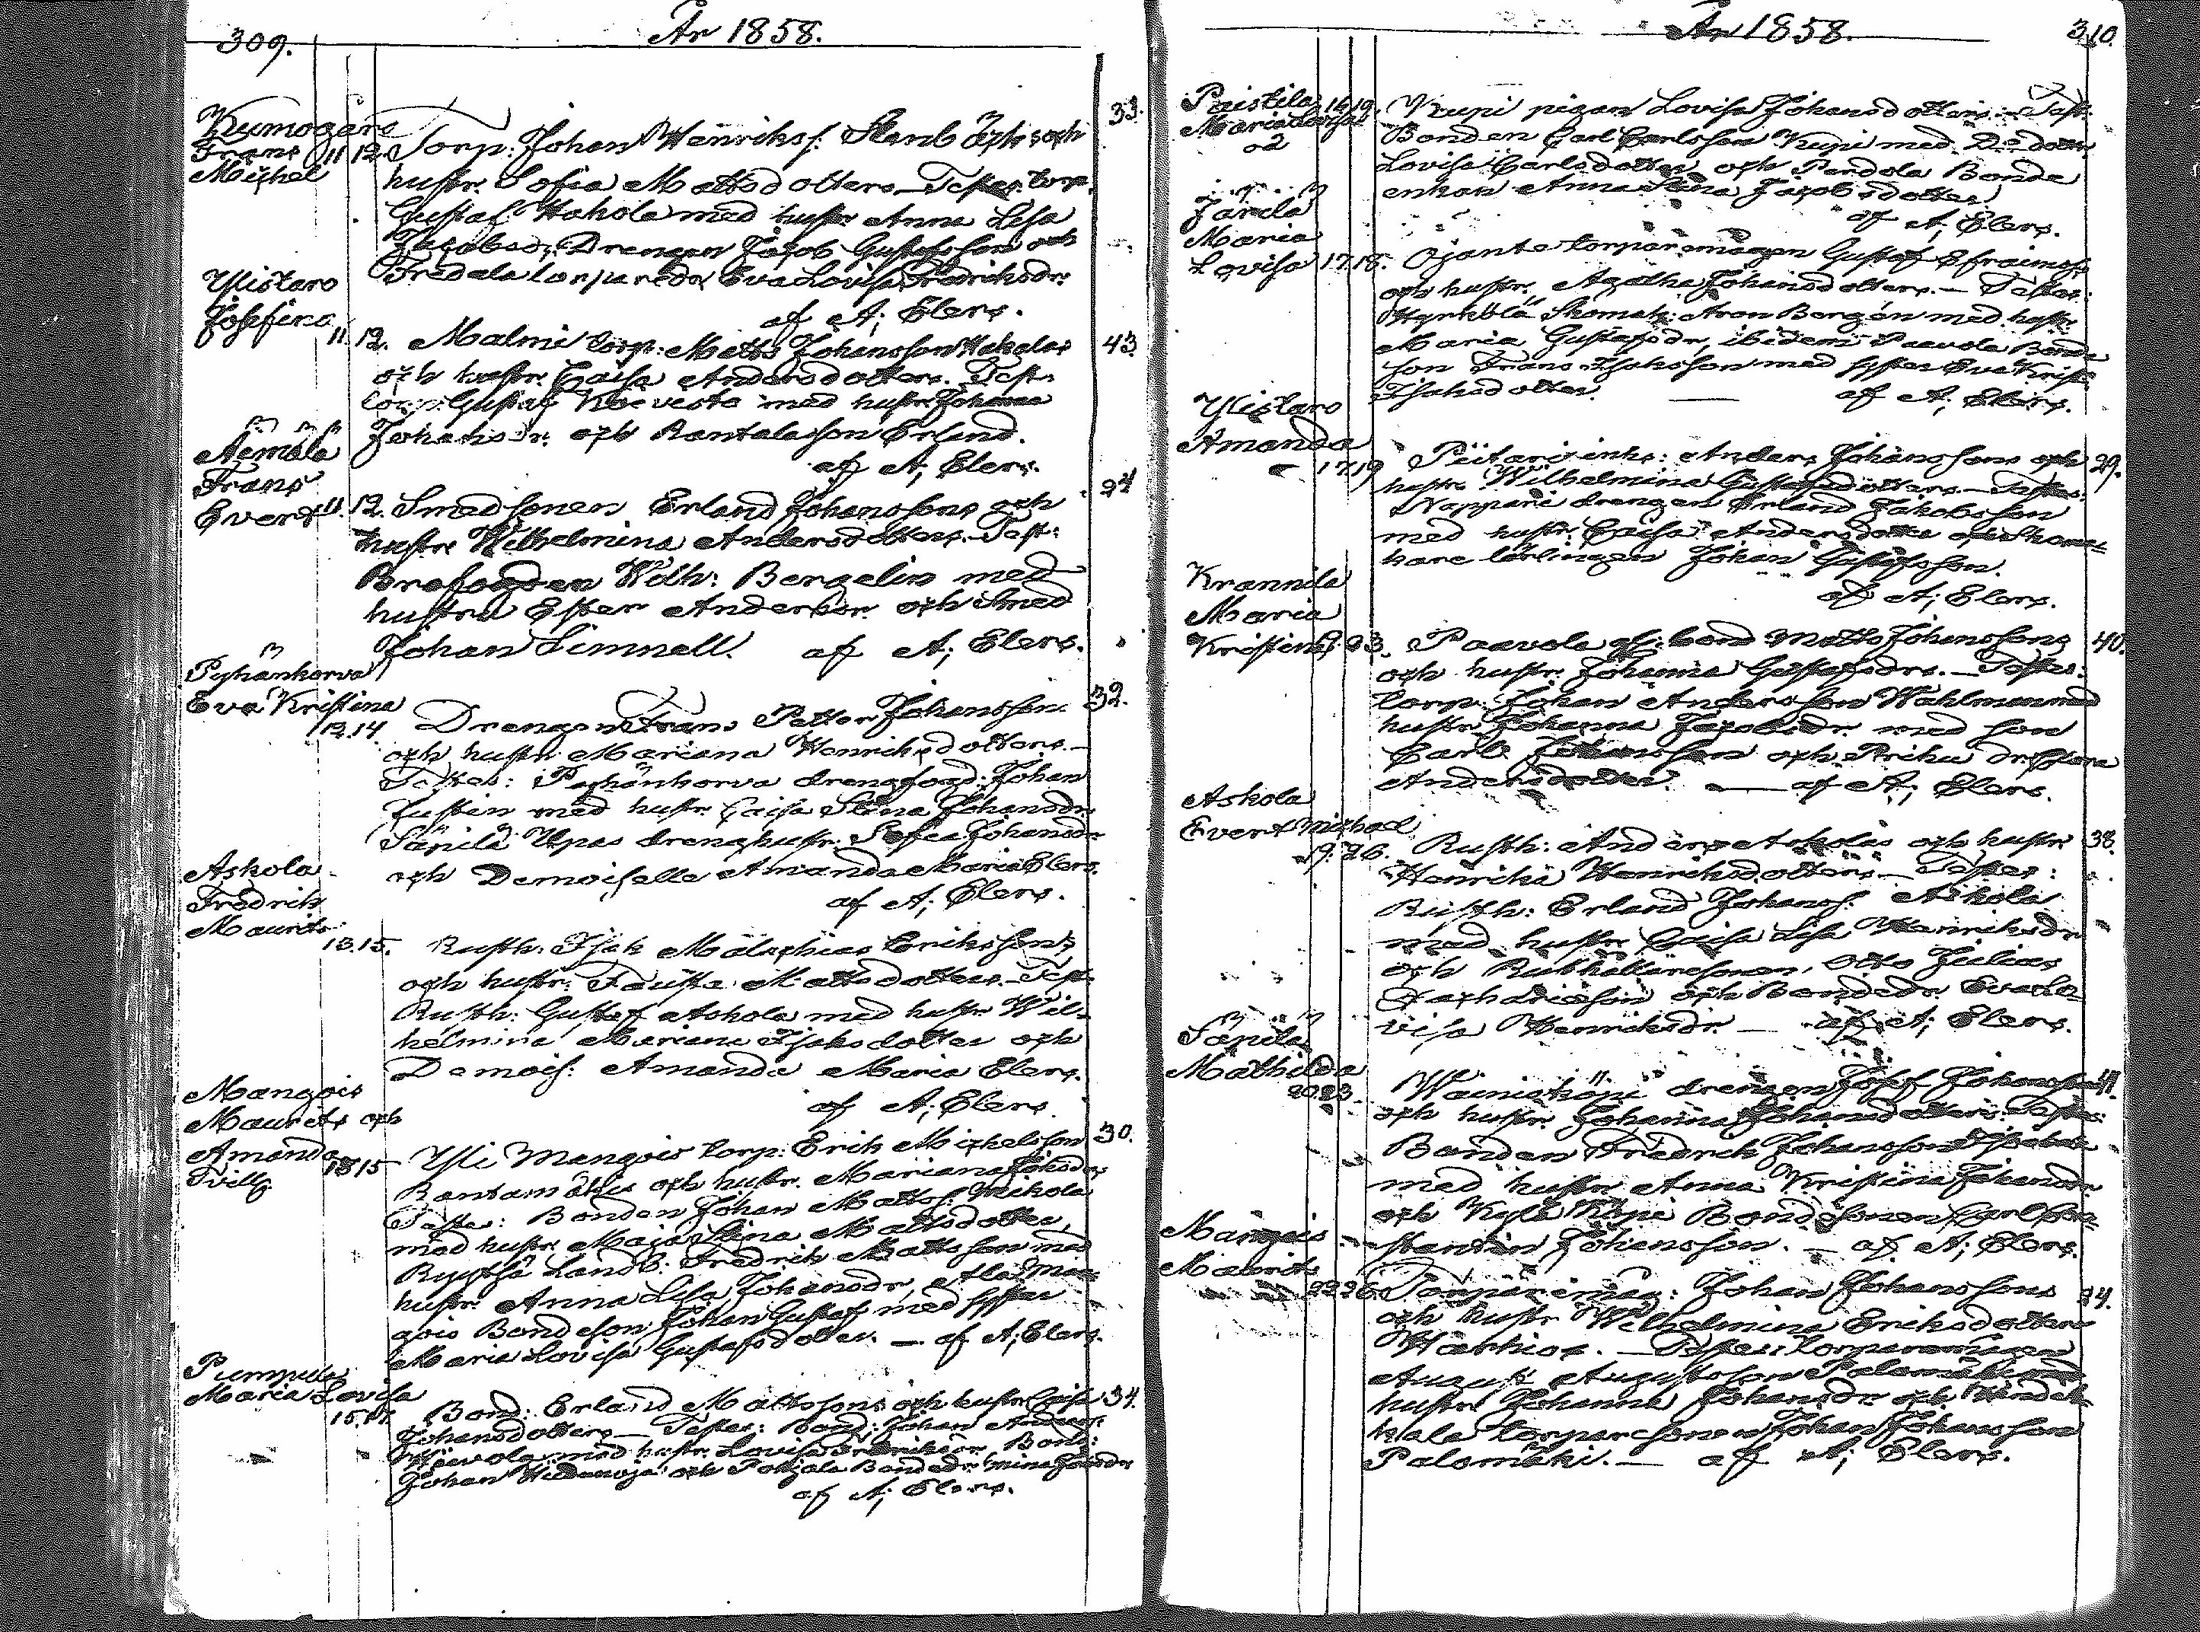 309.
År 1858.
Kumogård
Frans
Michel
11 12.
Torp: Johan Henrikss. Stenbäcks och
hustr. Sofia Mattsdotters. Testes: torp.
Gustaf Hakola med hustr. Anna Lisa
Jacobsd., Drengen Jacob Gustafsson och
Fredala torparedr. Eva Lovisa Fredriksdr.
af A; Elers.
33.
Ylistaro
Josefina
11. 12.
Malmi torp: Matts Johansson Hakalas
och hustr. Caisa Andersdotters. Test:
torp. Gustaf med hustr. Johanna
Johansdr. och Rantala son Erland.
af A; Elers.
43
Äimälä
Frans
Evert
11. 12.
Smedsonen Erland Johanssons och
hustr. Wilhelmina Andersdotters. Test:
Brofogden Wilh: Bergelin med
hustru Ester Andersdr. och Smed
Johan Limnell. af A; Elers.
24
Pyhänkorva
Eva Kristina
12. 14
Drengen Frans Petter Johansson
och hustr. Mariana Henriksdotters.
Testes: Pyhänkorva drengfogd: Johan
Justin med hustr. Caisa Stina Johansdr.
Sänilä Upas drenghustr. Sofia Johansdr.
och Demoiselle Amanda Maria Elers.
af A; Elers.
32.
Askola
Fredrik
Maurits
13. 15.
Rusth: Isak Malachias Erikssons
och hustr. Fausta Mattsdotters. Test.
Rusth: Gustaf Askola med hustr. Wil-
helmina Mariana Isaksdotter och
Demois: Amanda Maria Elers.
af A; Elers.
Mangois
Maurits och
Amanda
Tvill.
13 15
Yli Mangois torp: Erik Michelsson
Rantamäkis och hustr. Mariana
Testes: Bonden Johan Mattss. Mikola
med hustr. Maja Stina Mattsdotter,
Ryytsä Landb: Fredrik Mattsson med
hustr. Anna Lisa Johansdr, Ala Man-
gois Bondeson Johan Gustaf med syster
Maria Lovisa Gustafsdotter. — af A; Elers.
30.
Pumpula
Maria Lovisa
15. 17.
Bond: Erland Mattssons och hustr. Caisa
Johansdotters — Testes: Bond: Johan Anderss.
med hustr. Lovisa Fredriksdr, Bond:
Johan och Pohjala Bondedr. Mina
af A; Elers.
34.
År 1858.
310.
Paistila
Maria Lovisa
oä
16 19.
Kupi pigan Lovisa Johansdotters. Test:
Bonden Carl Carlsson Kupi med
Lovisa Carlsdotter och Perdola Bonde
enkan Anna Stina Jacobsdotter.
af A; Elers.
Järilä
Maria
Lovisa
17. 18.
Ojanta torparemågen Gustaf Efraimss.
och hustr. Agatha Johansdotters. — Testes:
Hyrkölä Skomak: Aron Bergén med hustr.
Maria Gustafsdr, ibidem, Paavola Bonde
son Frans Isaksson med syster Eva Krist.
Isaksdotter. — af A; Elers.
Ylistaro
Amanda
17. 19
Piitari inhs: Anders Johanssons och
hustr. Wilhelmina Gustafsdotters. — Testes:
Nappari drengen Erland Jakobsson
med hustr. Caisa Andersdotter och Skoma-
kare lärlingen Johan Gustafsson.
af A; Elers.
29.
Krannila
Maria
Kristina
23.
Paavola gl: bond Matts Johanssons
och hustr. Johanna Gustafsdrs. — Testes:
torp: Johan Andersson Wahlman med
hustr. Johanna Jacobsdr. med son
Carl Johansson och Prihu dr. Clara
Andersdotter. — af A; Elers.
40.
Askola
Evert Michael
19. 26.
Rusth: Anders Askolas och hustr.
Henrika Henriksdotters. — Testes:
Rusth: Erland Johanss. Askola
med hustr. Caisa Lisa Henriksdr.
och Rusthållaresonen, Otto Julius
Zachariasson och Bondedr. Eva Lo-
visa Henriksdr. — af A; Elers.
38.
Sänilä
Mathilda
20. 23.
Wainiokopi drengen Josef Johansson
och hustr. Johanna Johansdotters. Testes:
Bonden Fredrik Johansson
med hustr. Anna Kristina Johansdr.
och Kylä Köpi Bondesonen Carl Con-
stantin Johansson. — af A; Elers.
41.
Mangois
Maurits
22 26.
Torparemåg: Johan Johanssons
och hustr. Wilhelmina Eriksdotters
— Testes: torparemågen
August Augustsson Palomäki med
hustr. Johanna Johansdr. och
torparesonen Johan Johansson
Palomäki. — af A; Elers.
24.